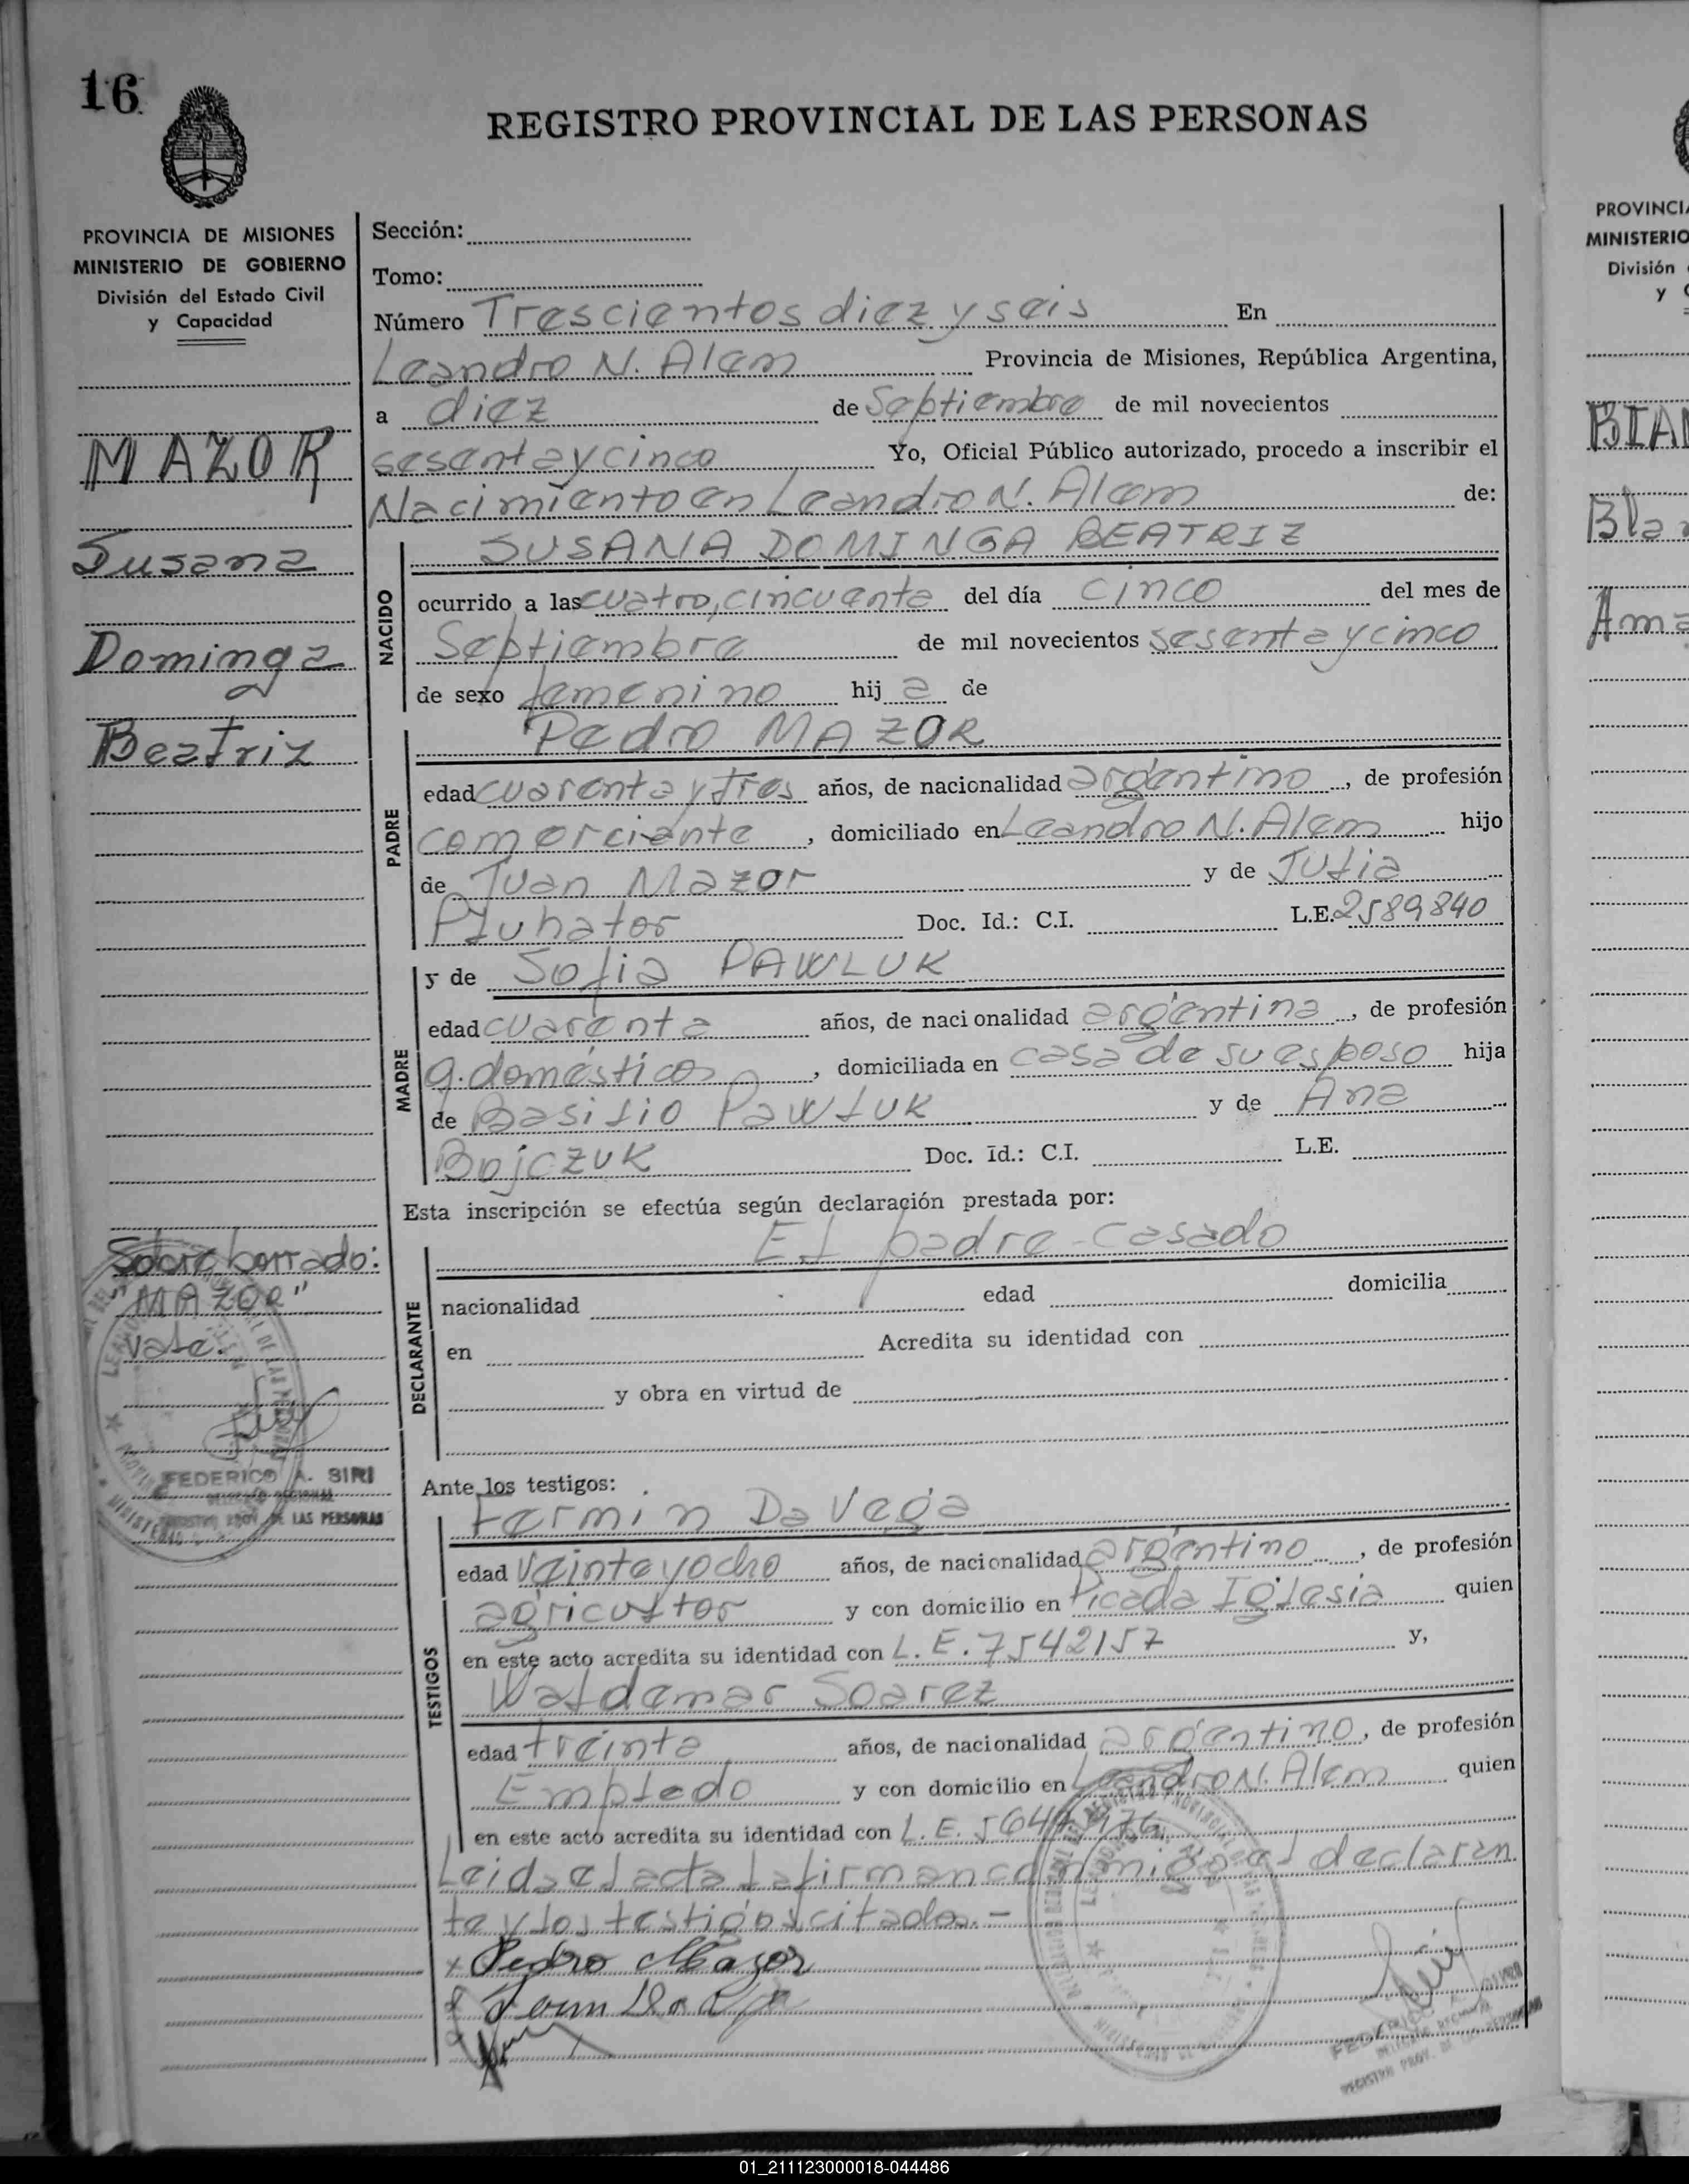 16
REGISTRO PROVINCIAL DE LAS PERSONAS
PROVINCIA DE MISIONES
MINISTERIO DE GOBIERNO
División del Estado Civil
y Capacidad
MAZOR
Susana
Dominga
Beatriz
Sobre borrado:
"MAZOR"
vale.
FEDERICO A. SIRI
DELEGADO REGIONAL
REGISTRO PROV. DE LAS PERSONAS
Sección:
Tomo:
Número Trescientos diez y seis En
Leandro N. Alem Provincia de Misiones, República Argentina,
a diez de Septiembre de mil novecientos
sesenta y cinco Yo, Oficial Público autorizado, procedo a inscribir el
Nacimiento en Leandro N. Alem de:
SUSANA DOMINGA BEATRIZ
NACIDO
ocurrido a las cuatro, cincuenta del día cinco del mes de
Septiembre de mil novecientos sesenta y cinco
de sexo femenino hij a de
Pedro MAZOR
PADRE
edad cuarenta y tres años, de nacionalidad argentino, de profesión
comerciante, domiciliado en Leandro N. Alem hijo
de Juan Mazor y de Julia
Pluhator Doc. Id.: C.I. L.E. 2589840
y de Sofia PAWLUK
MADRE
edad cuarenta años, de naci onalidad argentina, de profesión
q. domésticos, domiciliada en casa de su esposo hija
de Basilio Pawluk y de Ana
Bojczuk Doc. Id.: C.I. L.E.
Esta inscripción se efectúa según declaración prestada por:
El padre-casado
DECLARANTE
nacionalidad edad domicilia
en Acredita su identidad con
y obra en virtud de
Ante los testigos:
Fermin Da Vega
TESTIGOS
edad veinte y ocho años, de nacionalidad argentino, de profesión
agricultor y con domicilio en Picada Iglesia quien
en este acto acredita su identidad con L.E. 7542157 y,
Waldemar Soarez
edad treinta años, de nacionalidad argentino, de profesión
Empledo y con domicilio en Leandro N. Alem quien
en este acto acredita su identidad con L.E.
Leida el acta la firman conmigo el declaran
te y los testigos citados.-
x Pedro Mazor
PROVINCIA
MINISTERIO
División
y
BIAN
Bla
Ama
01_211123000018-044486